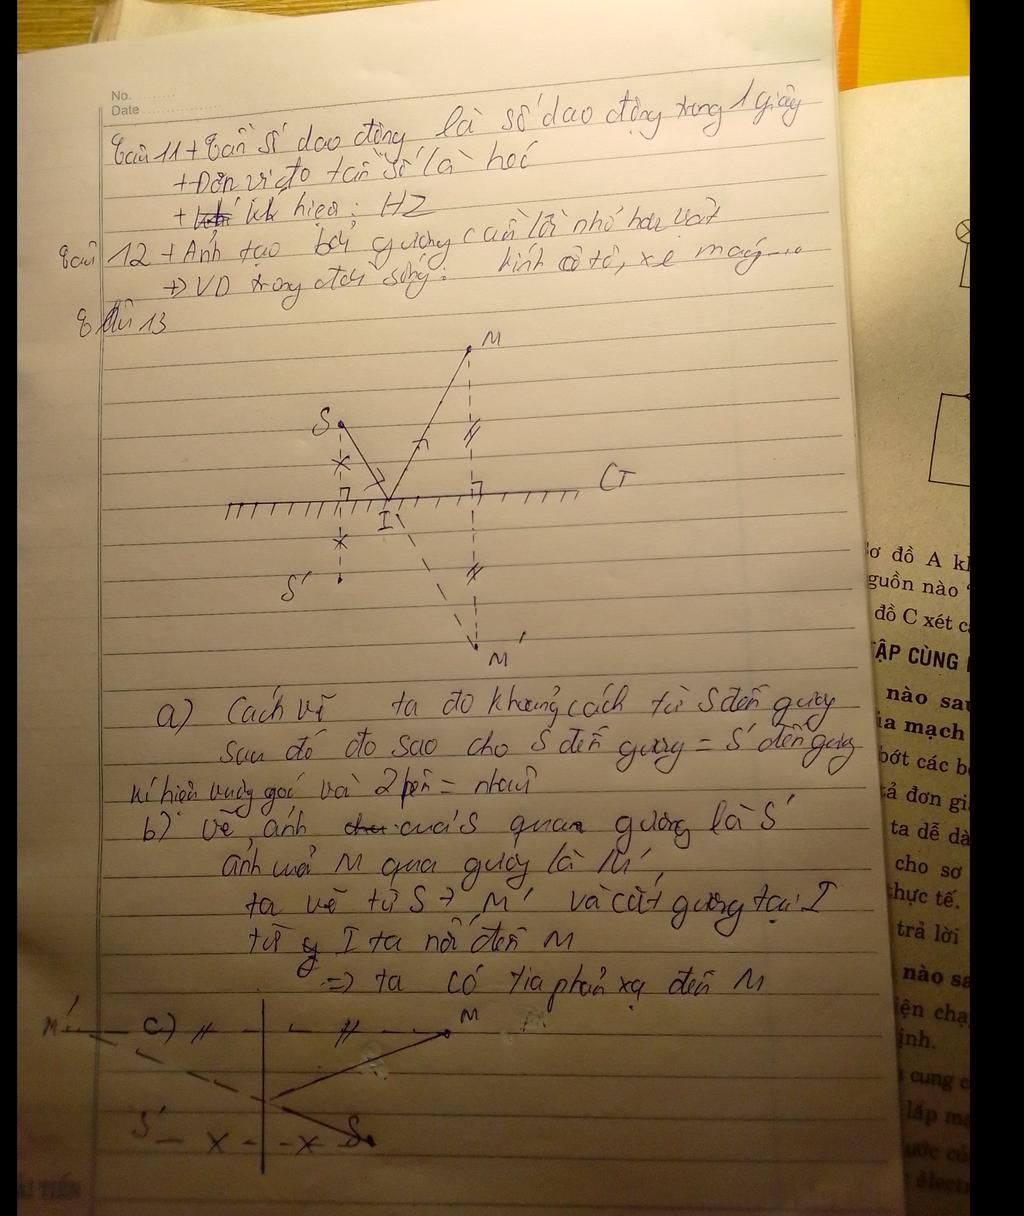 No.
Date
Câu 11 + Tần số dao động là số dao động trong 1 giây
+ Đơn vị đo tần số là héc
+ kí hiệu: HZ
Câu 12 + Ảnh tạo bởi gương cầu lồi nhỏ hơn vật
+> VD trong đời sống: kính ô tô, xe máy...
Câu 13
M
S
G
I
S'
M'
a) Cách vẽ ta đo khoảng cách từ S đến gương
sau đó đo sao cho S đến gương = S' đến gương
kí hiệu vuông góc và 2 bên = nhau
b) vẽ ảnh của S qua gương là S'
ảnh của M qua gương là M'
ta vẽ từ S → M' và cắt gương tại I
từ I ta nối đến M
=> ta có tia phản xạ đến M
M' c) M
S' S
Sơ đồ A kh
guồn nào
đồ C xét c
TẬP CÙNG
nào sau
ia mạch
bớt các b
tả đơn gi
ta dễ dà
cho sơ
thực tế.
trả lời
nào sa
iện chạ
ịnh.
cung c
lắp m
ước củ
électr